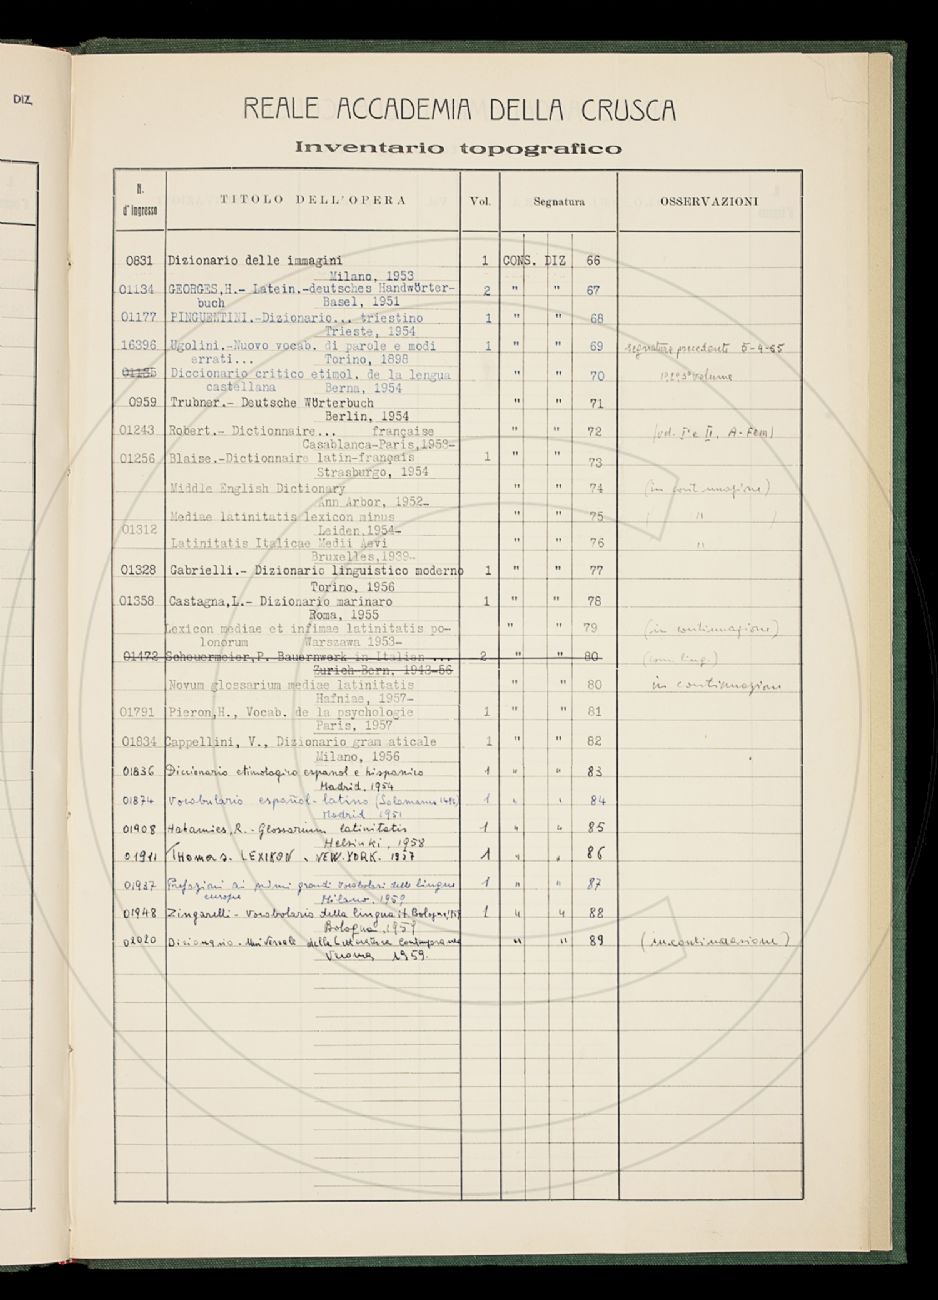 DIZ
REALE ACCADEMIA DELLA CRUSCA
Inventario topografico
N. d'Ingresso TITOLO DELL'OPERA Vol. Segnatura OSSERVAZIONI
0831 Dizionario delle immagini 1 CONS. DIZ 66
Milano, 1953
01134 GEORGES,H.- Latein.-deutsches Handwörter- 2 " " 67
buch Basel, 1951
01177 PINGUENTINI.-Dizionario... triestino 1 " " 68
Trieste, 1954
16396 Ugolini.-Nuovo vocab. di parole e modi 1 " " 69 segnatura precedente 5-4-65
errati... Torino, 1898
01185 Diccionario critico etimol. de la lengua " " 70 volume
castellana Berna, 1954
0959 Trubner.- Deutsche Wörterbuch " " 71
Berlin, 1954
01243 Robert.- Dictionnaire... française " " 72 (vol. I° e II, A-Fem)
Casablanca-Paris,1953-
01256 Blaise.-Dictionnaire latin-français 1 " " 73
Strasburgo, 1954
Middle English Dictionary " " 74 (in continuazione)
Ann Arbor, 1952-
Mediae latinitatis lexicon minus " " 75 ( "
01312 Leiden,1954-
Latinitatis Italicae Medii Aevi " " 76 "
Bruxelles,1939-
01328 Gabrielli.- Dizionario linguistico moderno 1 " " 77
Torino, 1956
01358 Castagna,L.- Dizionario marinaro 1 " " 78
Roma, 1955
Lexicon mediae et infimae latinitatis po- " " 79 (in continuazione)
lonorum Warszawa 1953-
01472 Scheuermeier,P. Bauernwerk in Italien ... 2 " " 80 (com. ling.)
Zurich-Bern, 1943-56
Novum glossarium mediae latinitatis " " 80 in continuazione
Hafniae, 1957-
01791 Pieron,H., Vocab. de la psychologie 1 " " 81
Paris, 1957
01834 Cappellini, V., Dizionario gram aticale 1 " " 82
Milano, 1956
01836 Diccionario etimologico español e hispanico 1 " " 83
Madrid, 1954
01874 Vocabulario español-latino (Salamanca 1492) 1 " " 84
Madrid 1951
01908 Hakamies, R. - Glossarium latinitatis 1 " " 85
Helsinki, 1958
01911 Thomas. LEXIKON - NEW.YORK. 1957 1 " " 86
01937 Prefazioni ai primi grandi vocabolari delle lingue 1 " " 87
europee Milano, 1959
01948 Zingarelli - Vocabolario della lingua it. Bologna, 1959 1 " " 88
Bologna, 1959
02020 Dizionario - Universale della Letteratura Contemporanea " " 89 (in continuazione)
Verona, 1959.